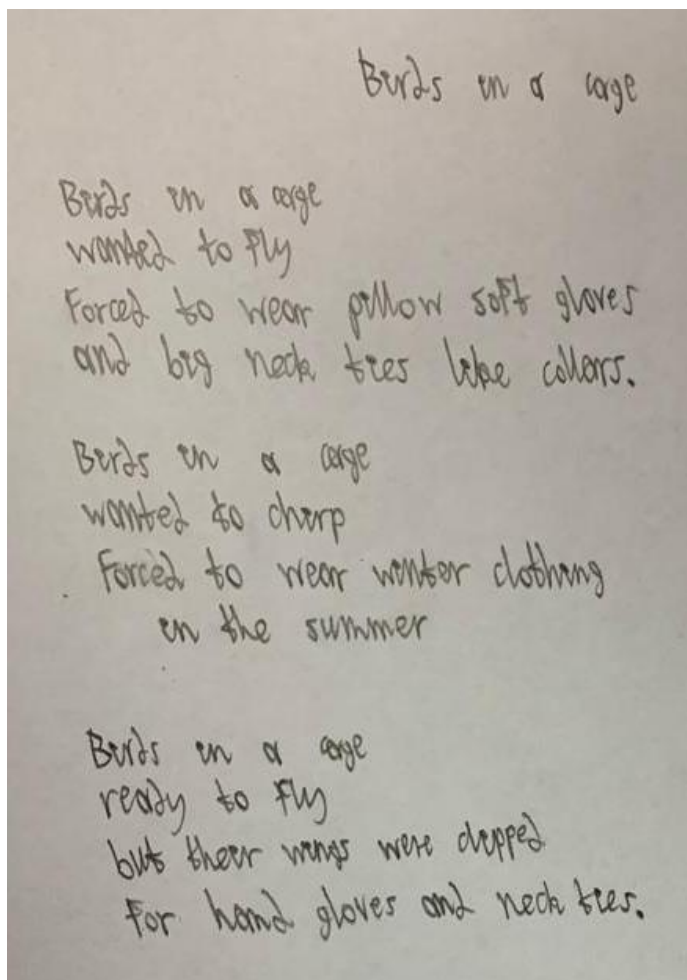 Birds in a cage
Birds in a cage
wanted to fly
Forced to wear pillow soft gloves
and big neck ties like collars.
Birds in a cage
wanted to chirp
Forced to wear winter clothing
in the summer
Birds in a cage
ready to fly
but their wings were clipped
For hand gloves and neck ties.